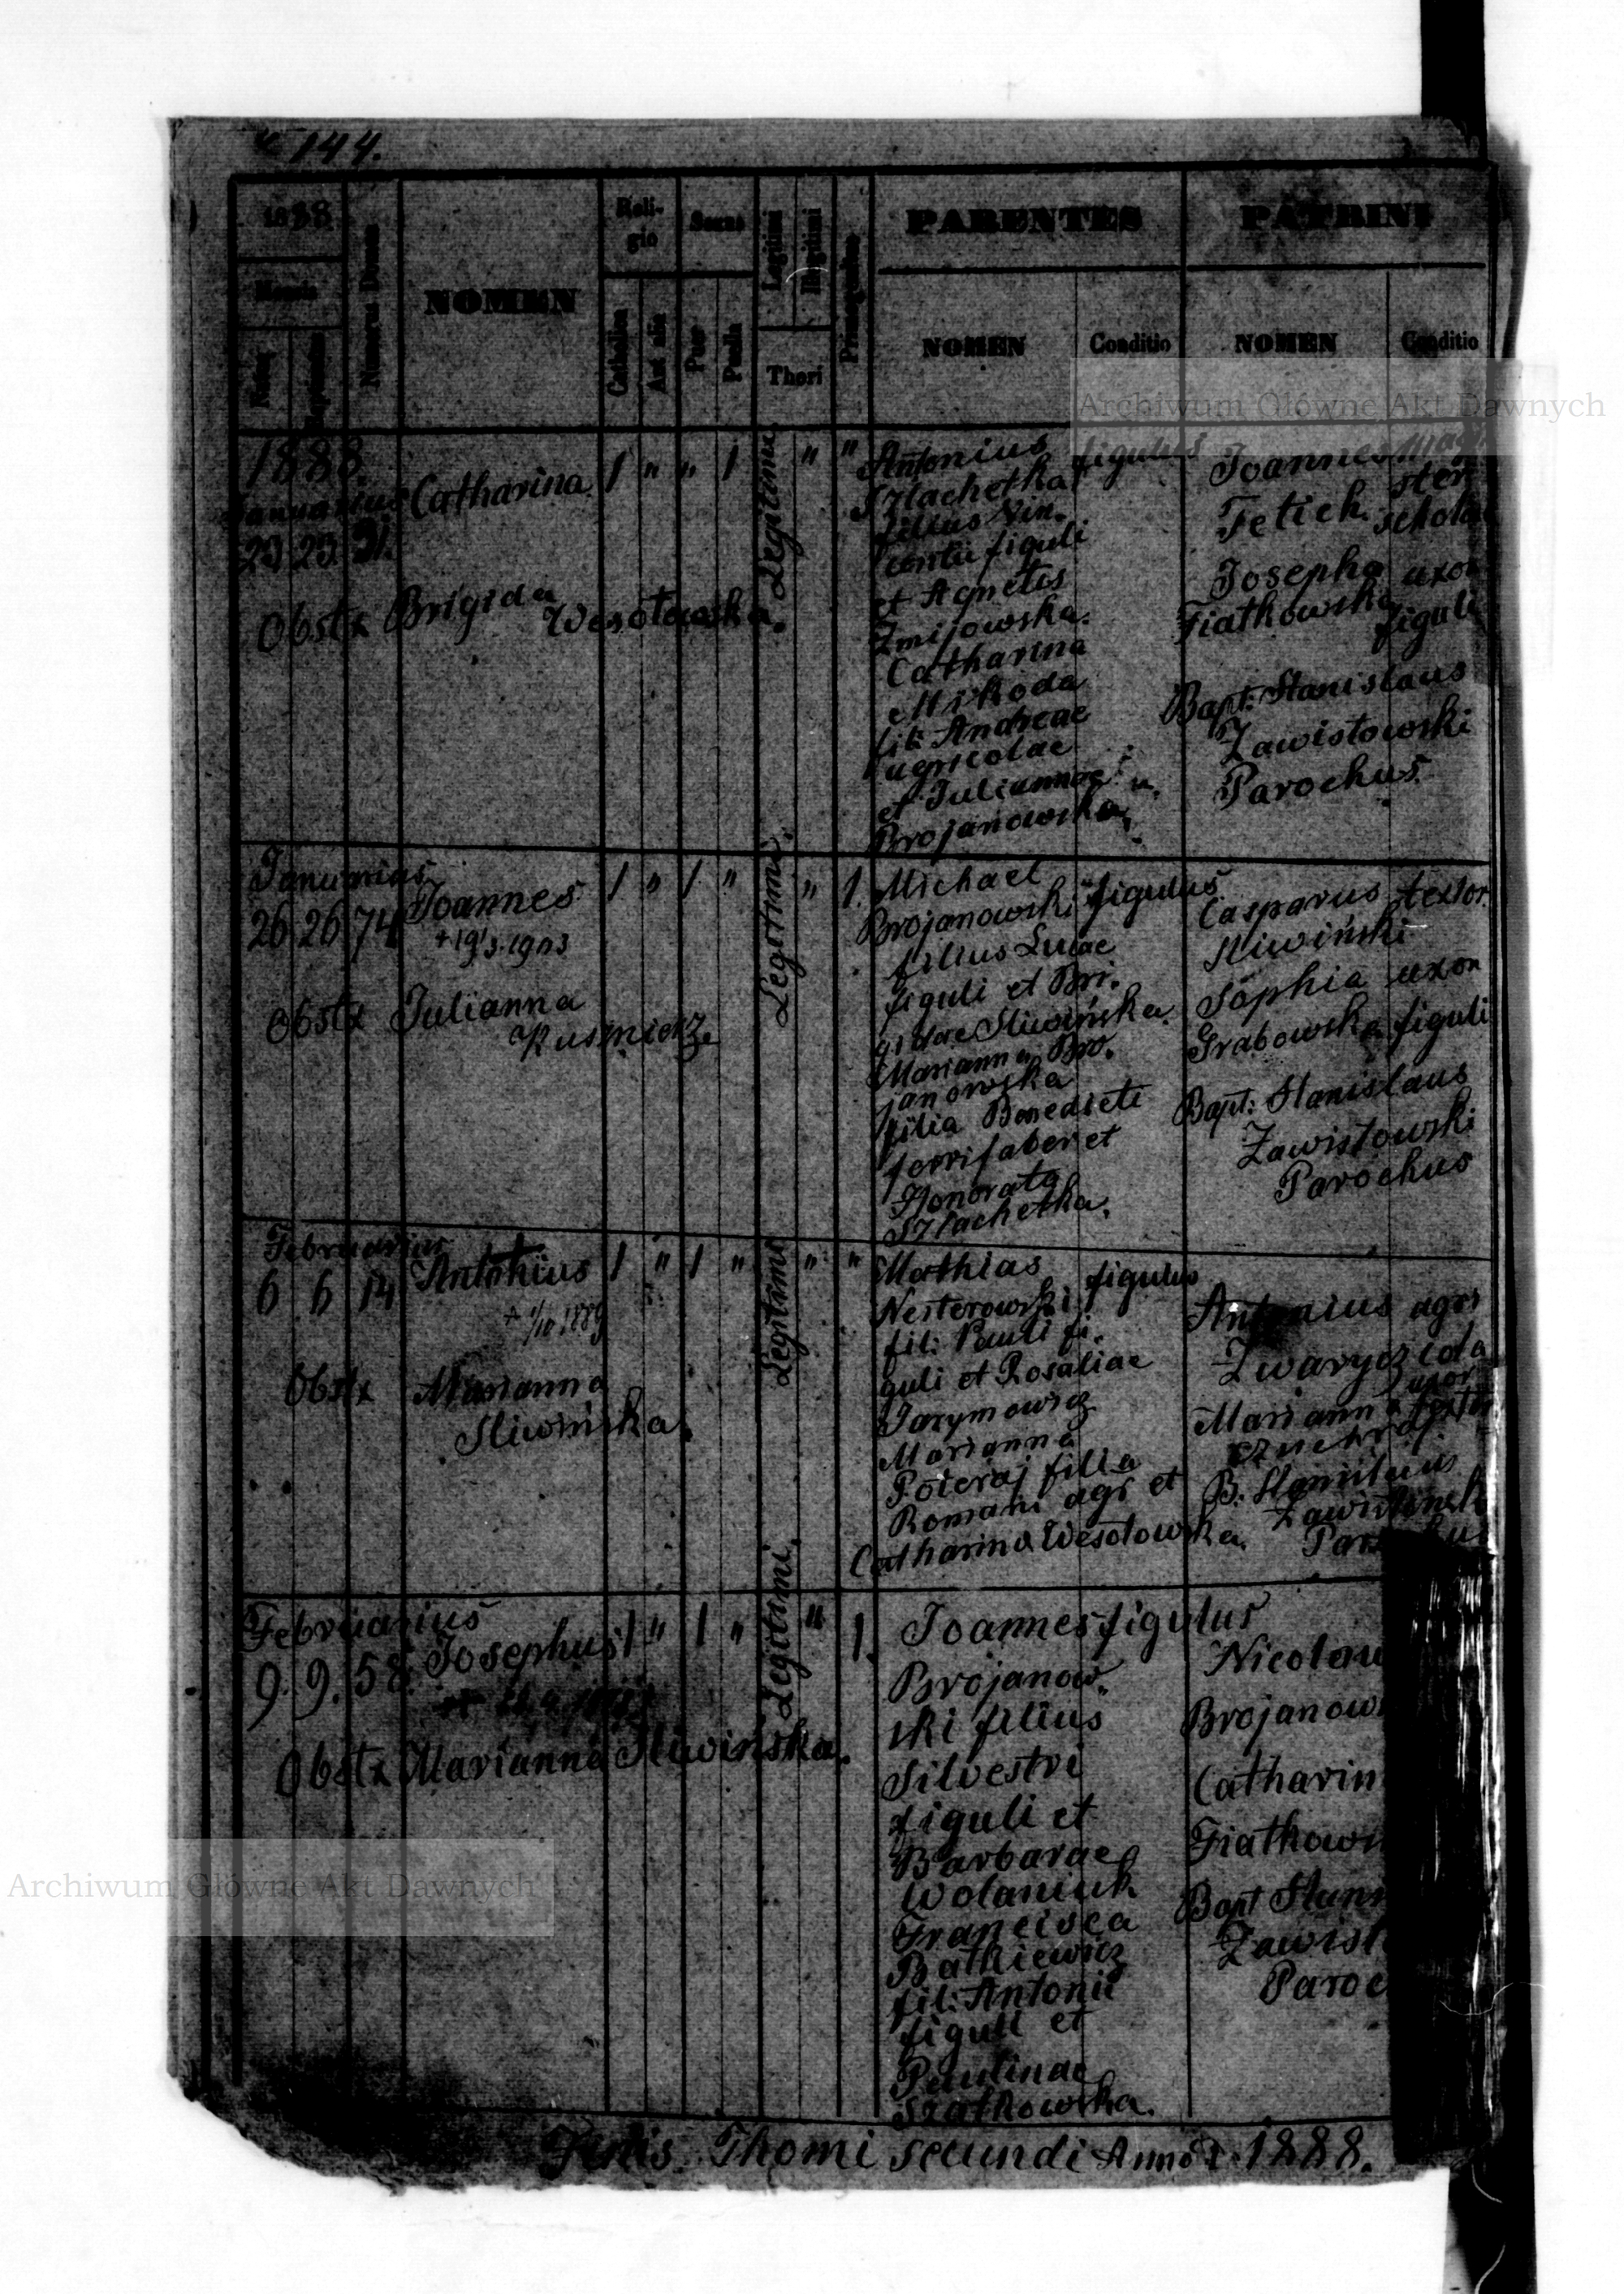 144.
1888.
Mensis
Natus
Baptisatus
Numerus Domus
NOMEN
Reli-
gio
Catholica
Aut alia
Sexus
Puer
Puella
Legitimi
Illegitimi
Thori
PARENTES
NOMEN
Conditio
PATRINI
NOMEN
Conditio
Archiwum Główne Akt Dawnych
1888
Januarius
23 23 31.
Catharina
1 " " 1
Legitimi.
" "
Obstx Brigida
Wesołowska.
Antonius figulus
Szlachetka
filius Vin.
centii figuli
et Agnetis
Żmijowska.
Catharina
Mikoda
fil: Andreae
agricolae
et Juliannae
Brojanowska.
Joannes magi
ster
Fetich schola
Josepha uxor
Fiatkowska figuli
Bapt: Stanislaus
Zawistowski
Parochus.
Januarius
26 26 74
Joannes
1 " 1 "
Legitimi.
" 1.
Obstx Julianna
Kusznierz
Michael
Brojanowski figulus
filius Lucae
figuli et Bri.
gidae Sliwińska.
Marianna Bro.
janowska
filia Benedicti
ferrifaber et
Honorata
Szlachetka.
Casparus textor.
Sliwiński
Sophia uxor
Grabowska figuli
Bapt: Stanislaus
Zawistowski
Parochus
Februarius
6 6 14
Antonius
+ 1/10 1889
1 " 1 "
Legitimi
" "
Obstx Marianna
Sliwińska.
Mathias
Nesterowski figulus
fil: Pauli fi.
guli et Rosaliae
Jarymowicz
Marianna
Poteraj filia
Romani agr et
Catharina Wesołowska.
Antonius agri
Zwarycz cola
uxor
Marianna
B. Stanislaus
Februarius
9. 9. 58.
Josephus
1 " 1 "
Legitimi.
" 1.
Obstx Marianna Sliwińska.
Joannes figulus
Brojanow.
ski filius
Silvestri
figuli et
Barbarae
Wolaniuk
Francisca
Batkiewicz
fil: Antonii
figuli et
Paulinae
Szatkowska.
Nicolau
Brojanow
Catharin
Fiatkows
Bapt Stan
Zawist
Paroc
Archiwum Główne Akt Dawnych
Finis. Thomi secundi Anno D. 1888.